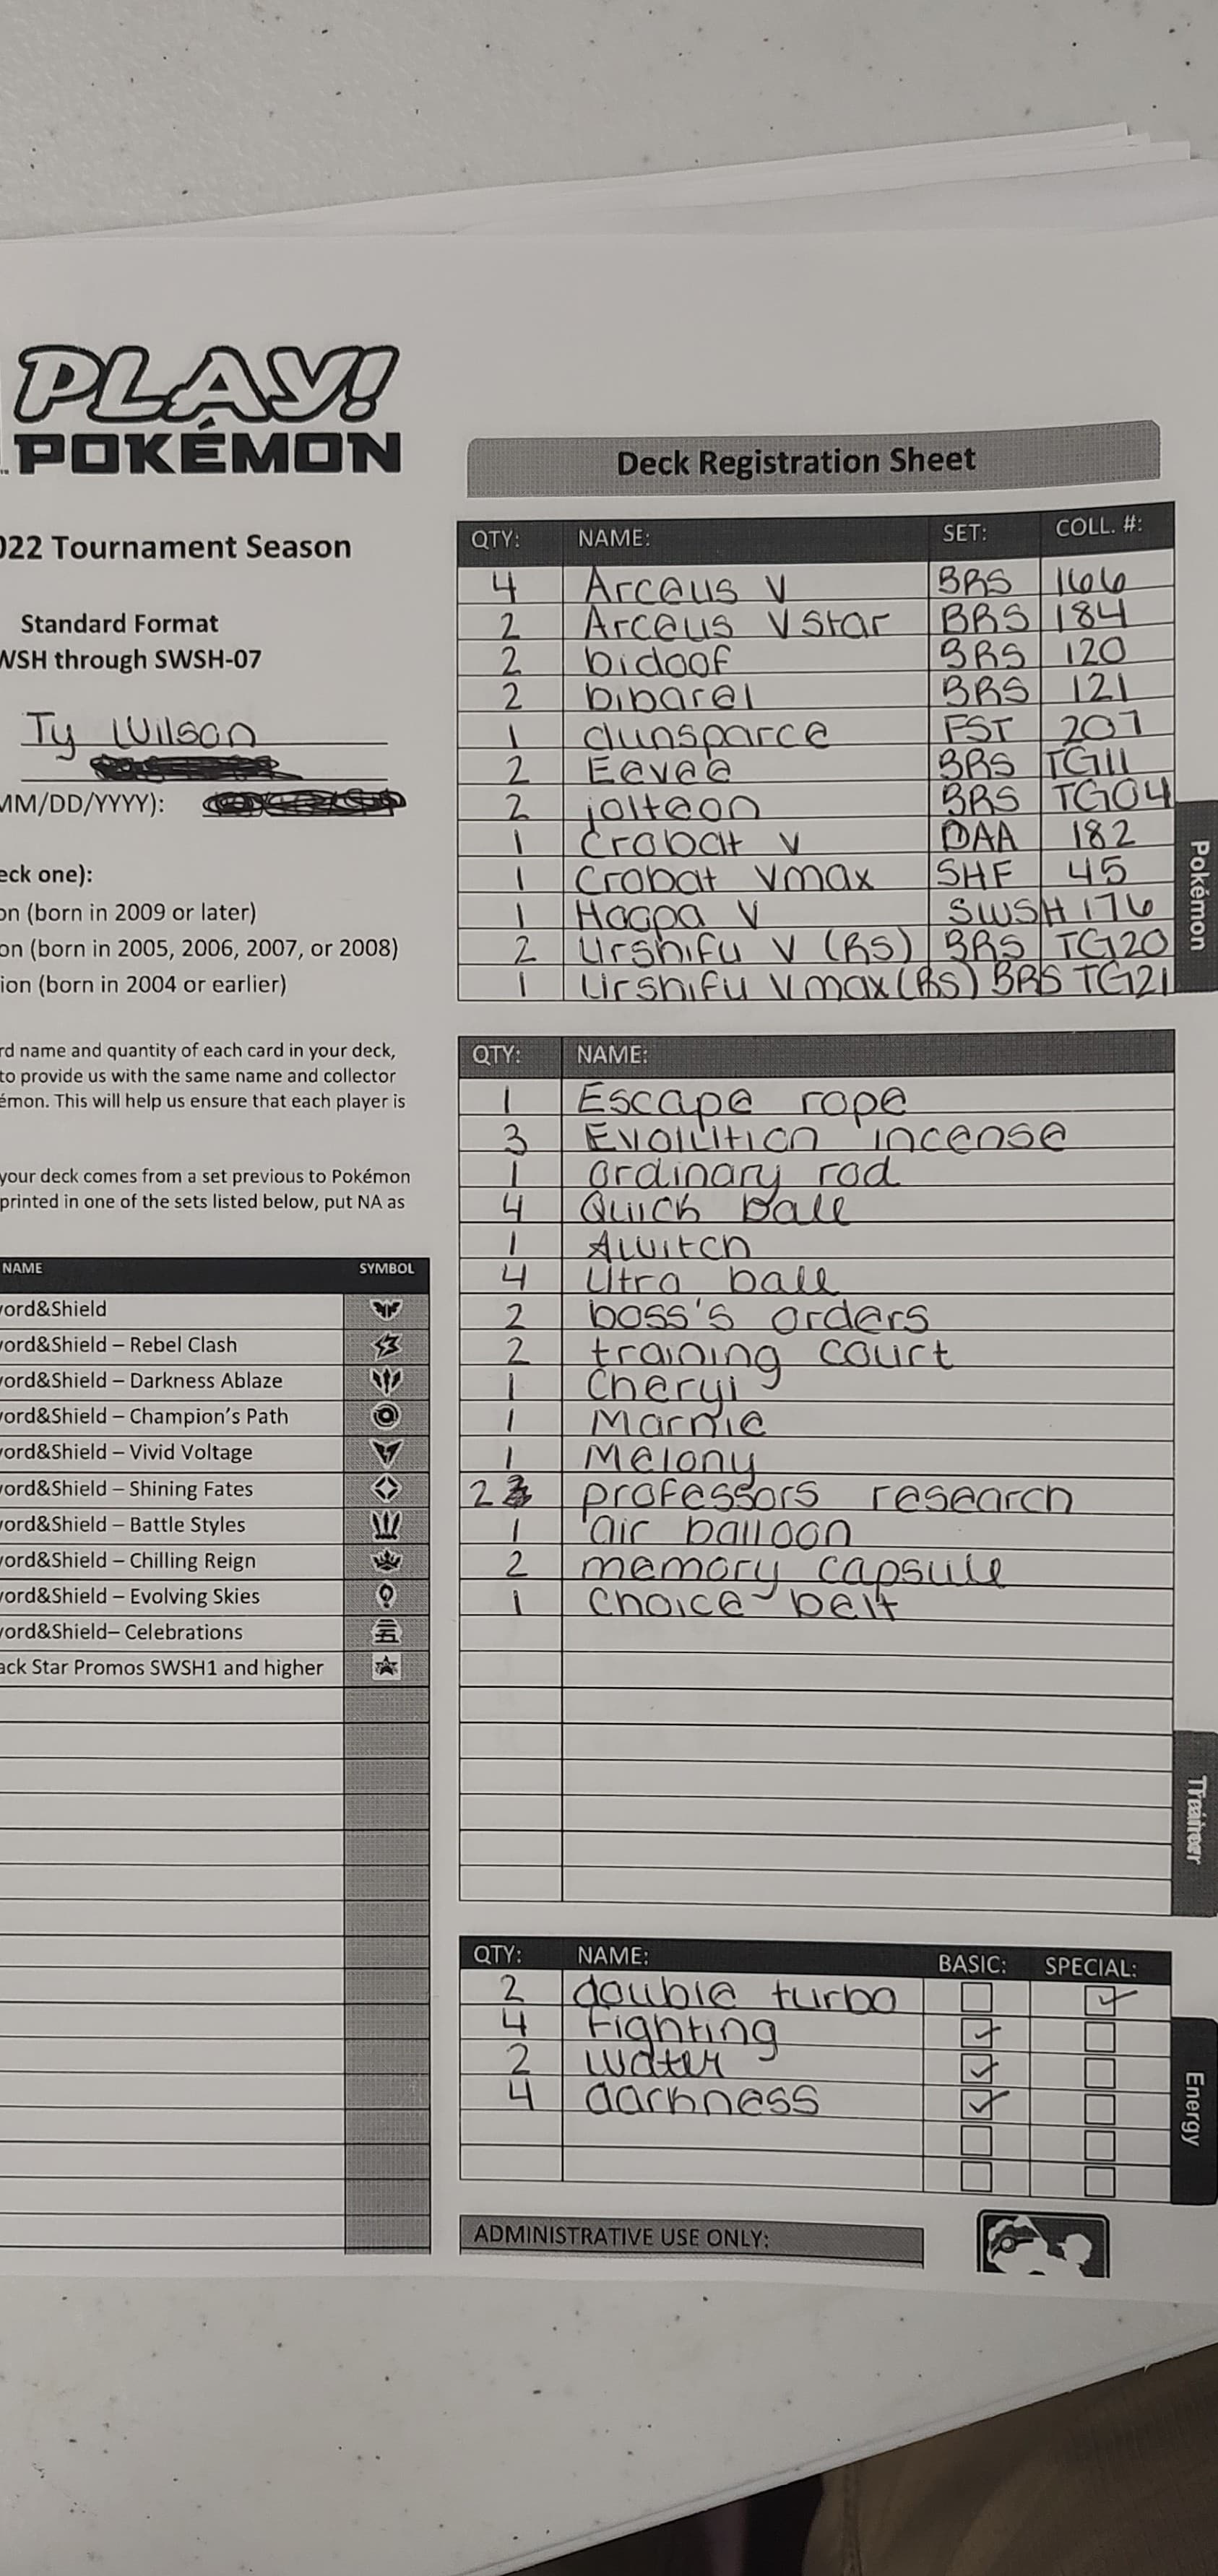 PLAY!
POKÉMON
022 Tournament Season
Standard Format
WSH through SWSH-07
Ty Wilson
MM/DD/YYYY):
eck one):
on (born in 2009 or later)
on (born in 2005, 2006, 2007, or 2008)
ion (born in 2004 or earlier)
rd name and quantity of each card in your deck,
to provide us with the same name and collector
émon. This will help us ensure that each player is
your deck comes from a set previous to Pokémon
printed in one of the sets listed below, put NA as
NAME SYMBOL
word&Shield
word&Shield – Rebel Clash
word&Shield – Darkness Ablaze
word&Shield – Champion's Path
word&Shield – Vivid Voltage
word&Shield – Shining Fates
word&Shield – Battle Styles
word&Shield – Chilling Reign
word&Shield – Evolving Skies
word&Shield– Celebrations
ack Star Promos SWSH1 and higher
Deck Registration Sheet
QTY: NAME: SET: COLL. #:
4 Arceus V BRS 166
2 Arceus Vstar BRS 184
2 bidoof BRS 120
2 bibarel BRS 121
1 dunsparce FST 207
2 Eevee BRS TG11
2 jolteon BRS TG04
1 Crobat V DAA 182
1 Crobat Vmax SHF 45
1 Hoopa V SWSH176
2 Urshifu V (RS) BRS TG20
1 Urshifu Vmax (RS) BRS TG21
Pokémon
QTY: NAME:
1 Escape rope
3 Evolution incense
1 ordinary rod
4 Quick ball
1 Switch
4 Ultra ball
2 boss's orders
2 training court
1 Cheryl
1 Marnie
1 Melony
2 professors research
1 air balloon
2 memory capsule
1 Choice belt
Trainer
QTY: NAME: BASIC: SPECIAL:
2 double turbo
4 Fighting
2 water
4 darkness
Energy
ADMINISTRATIVE USE ONLY: